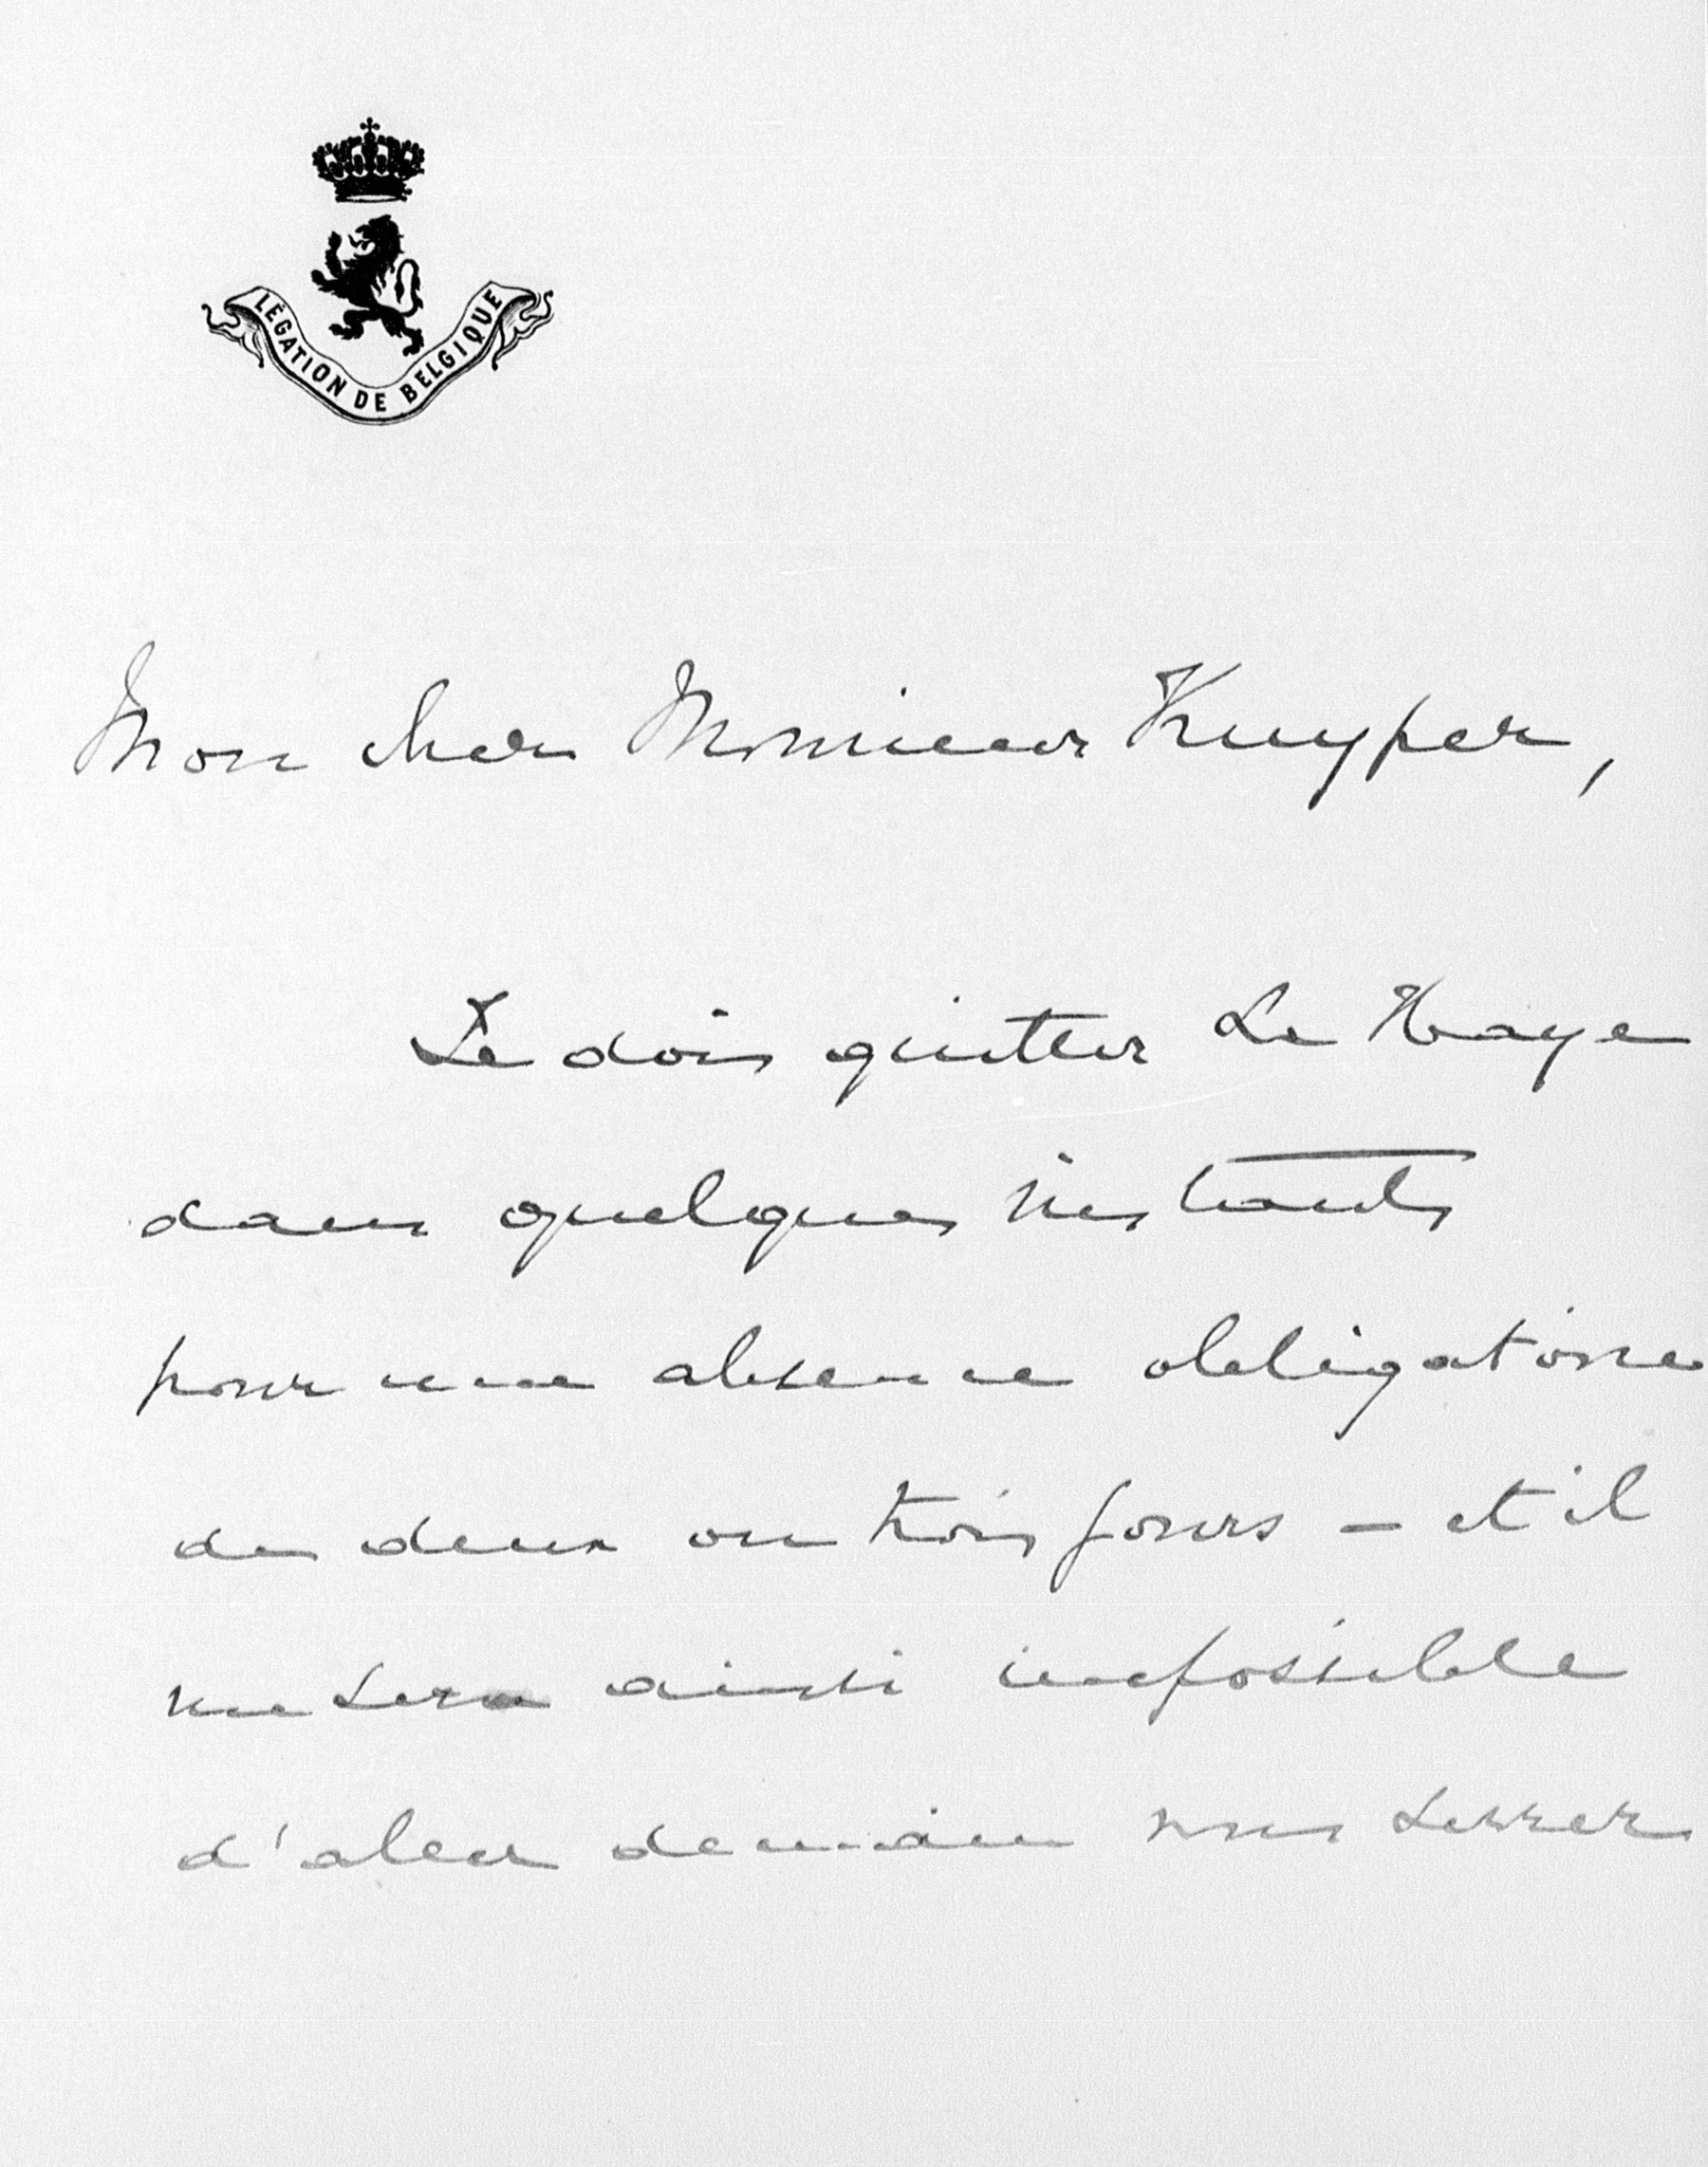 LÉGATION DE BELGIQUE
Mon cher Monsieur Kuyper,
Je dois quitter La Haye
dans quelques instants
pour une absence obligatoire
de deux ou trois jours – et il
me sera ainsi impossible
d'aler demain vous serrer